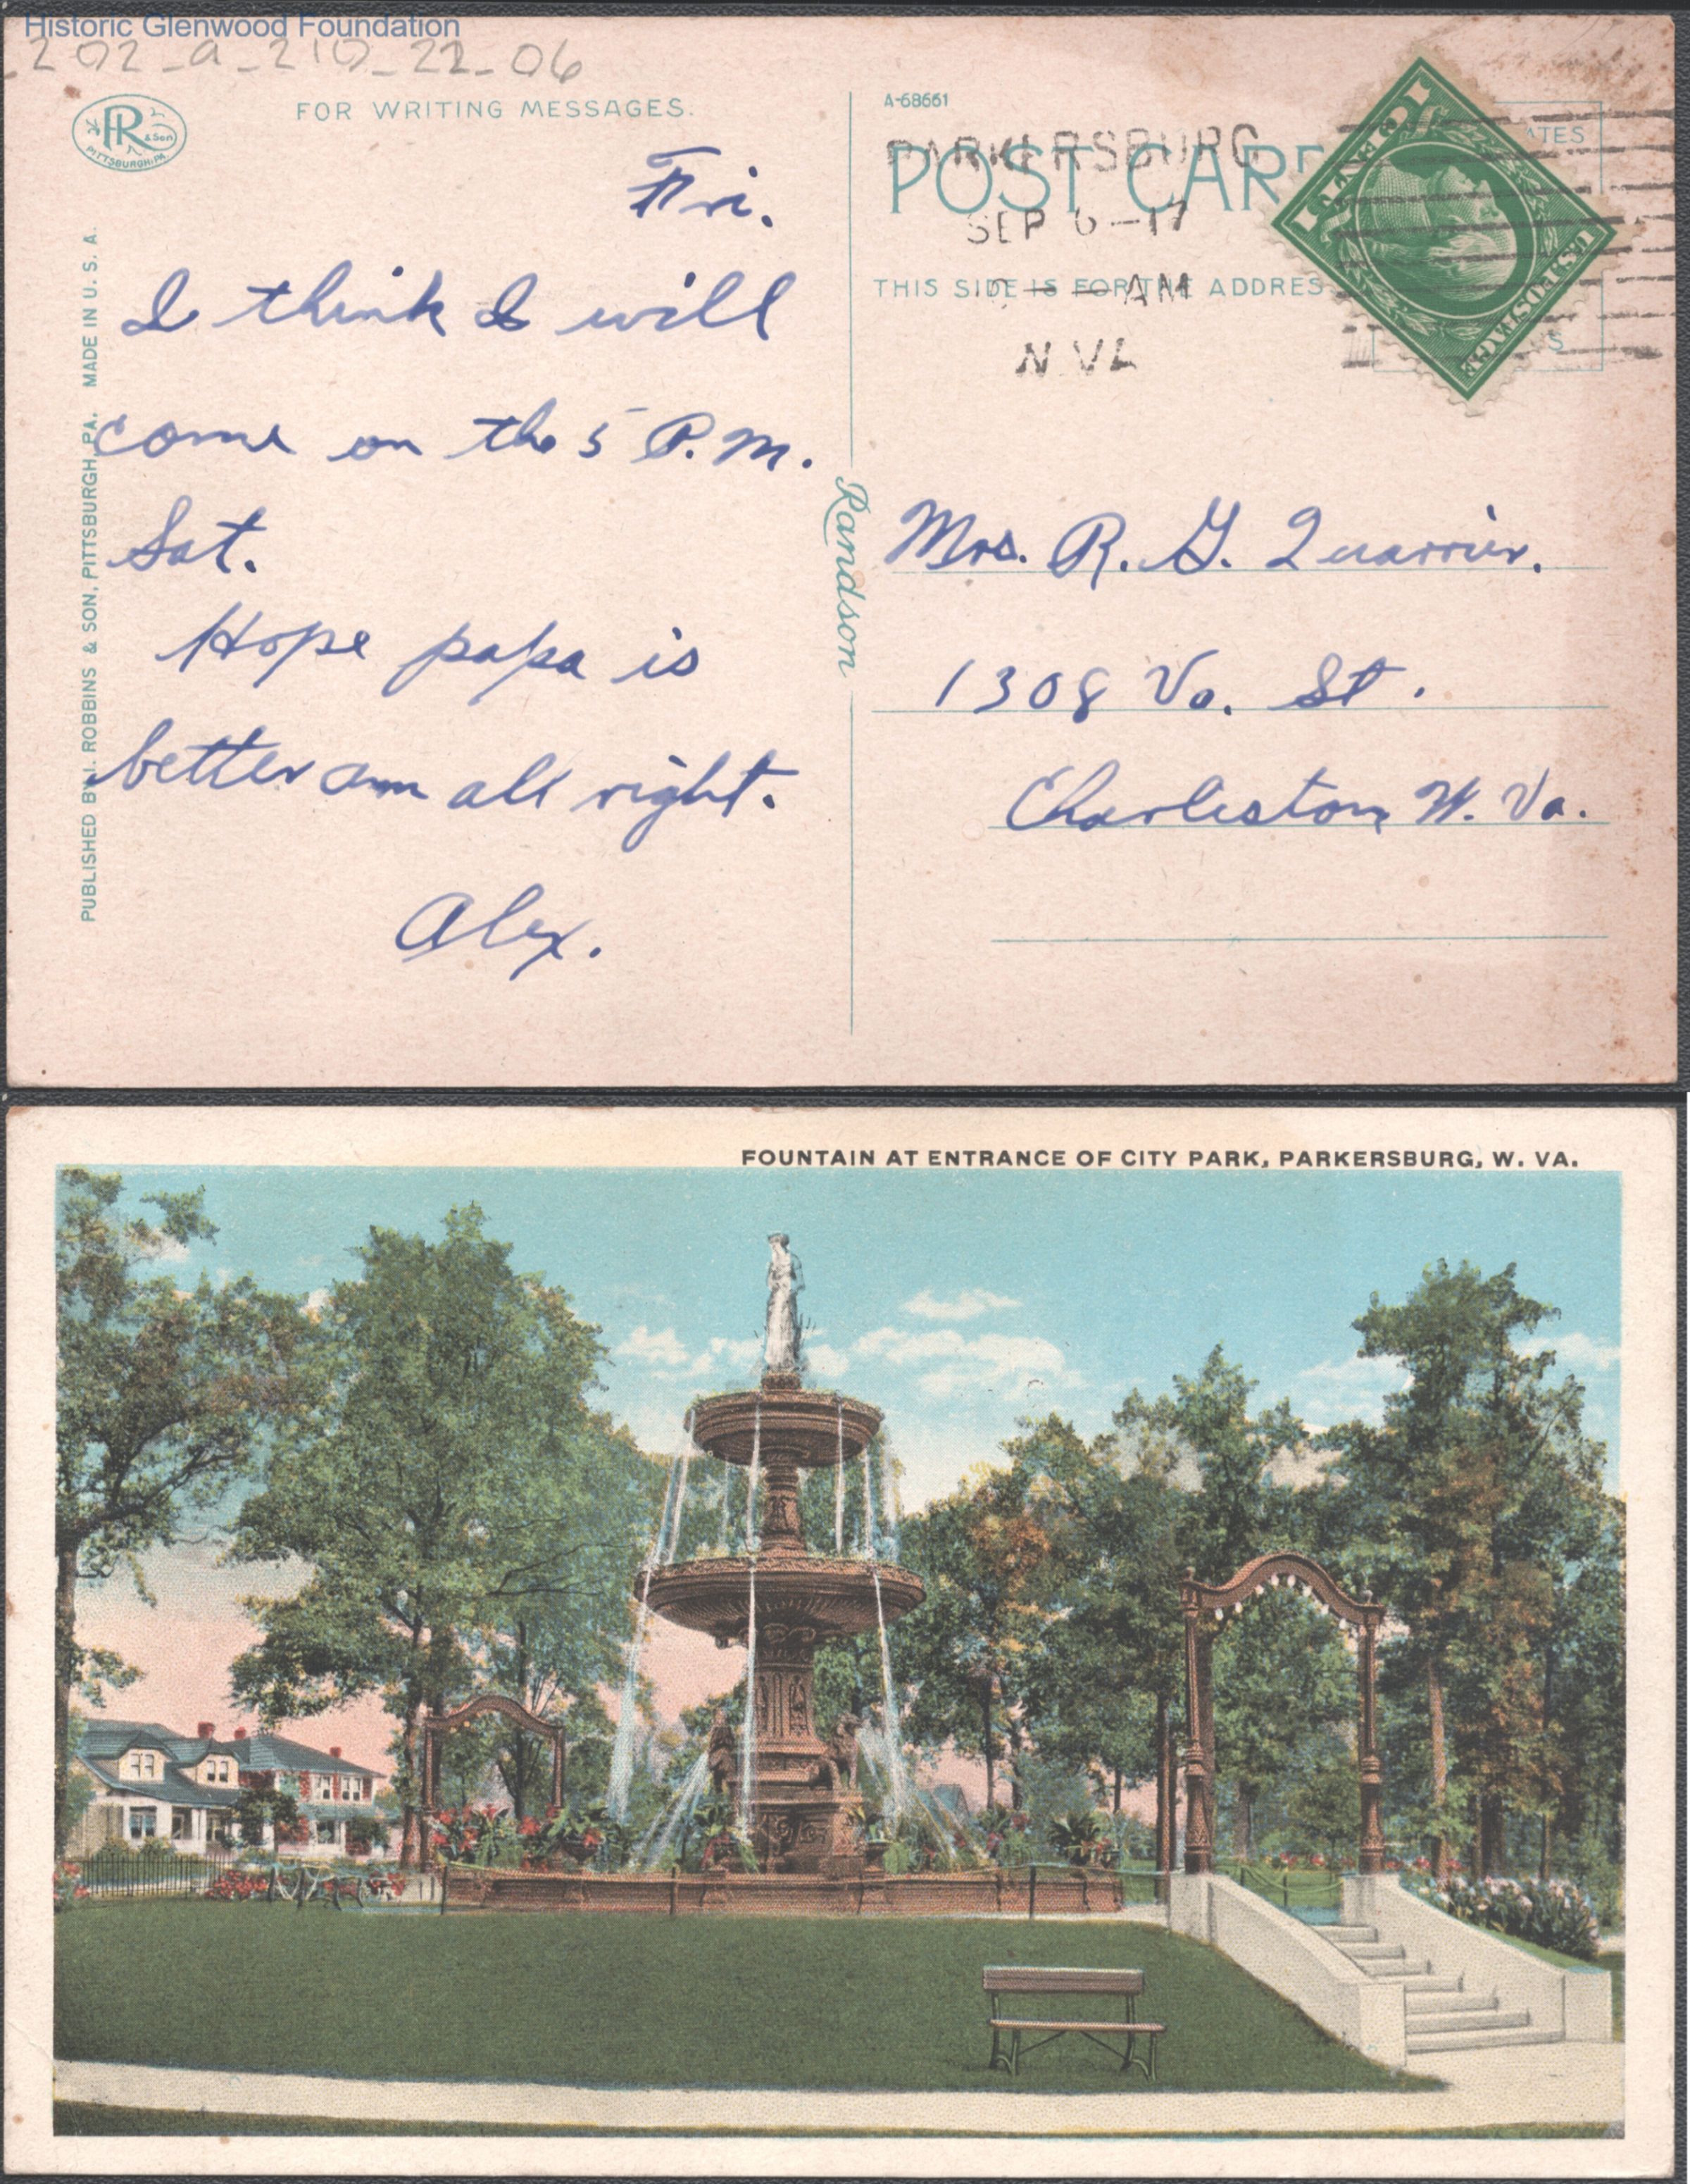 Historic Glenwood Foundation
202_a_210_22_06
R & Son
PITTSBURGH, PA.
FOR WRITING MESSAGES.
PUBLISHED BY I. ROBBINS & SON, PITTSBURGH, PA. MADE IN U. S. A.
Fri.
I think I will
come on the 5 P.M.
Sat.
Hope papa is
better am all right.
Alex.
Randson
A-68661
POST CAR
PARKERSBURG
SEP 6-17
AM
THIS SIDE IS FOR THE ADDRES
1 CENT 1
U.S. POSTAGE
Mrs. R. G. Quarrier.
1308 Va. St.
Charleston W. Va.
FOUNTAIN AT ENTRANCE OF CITY PARK, PARKERSBURG, W. VA.